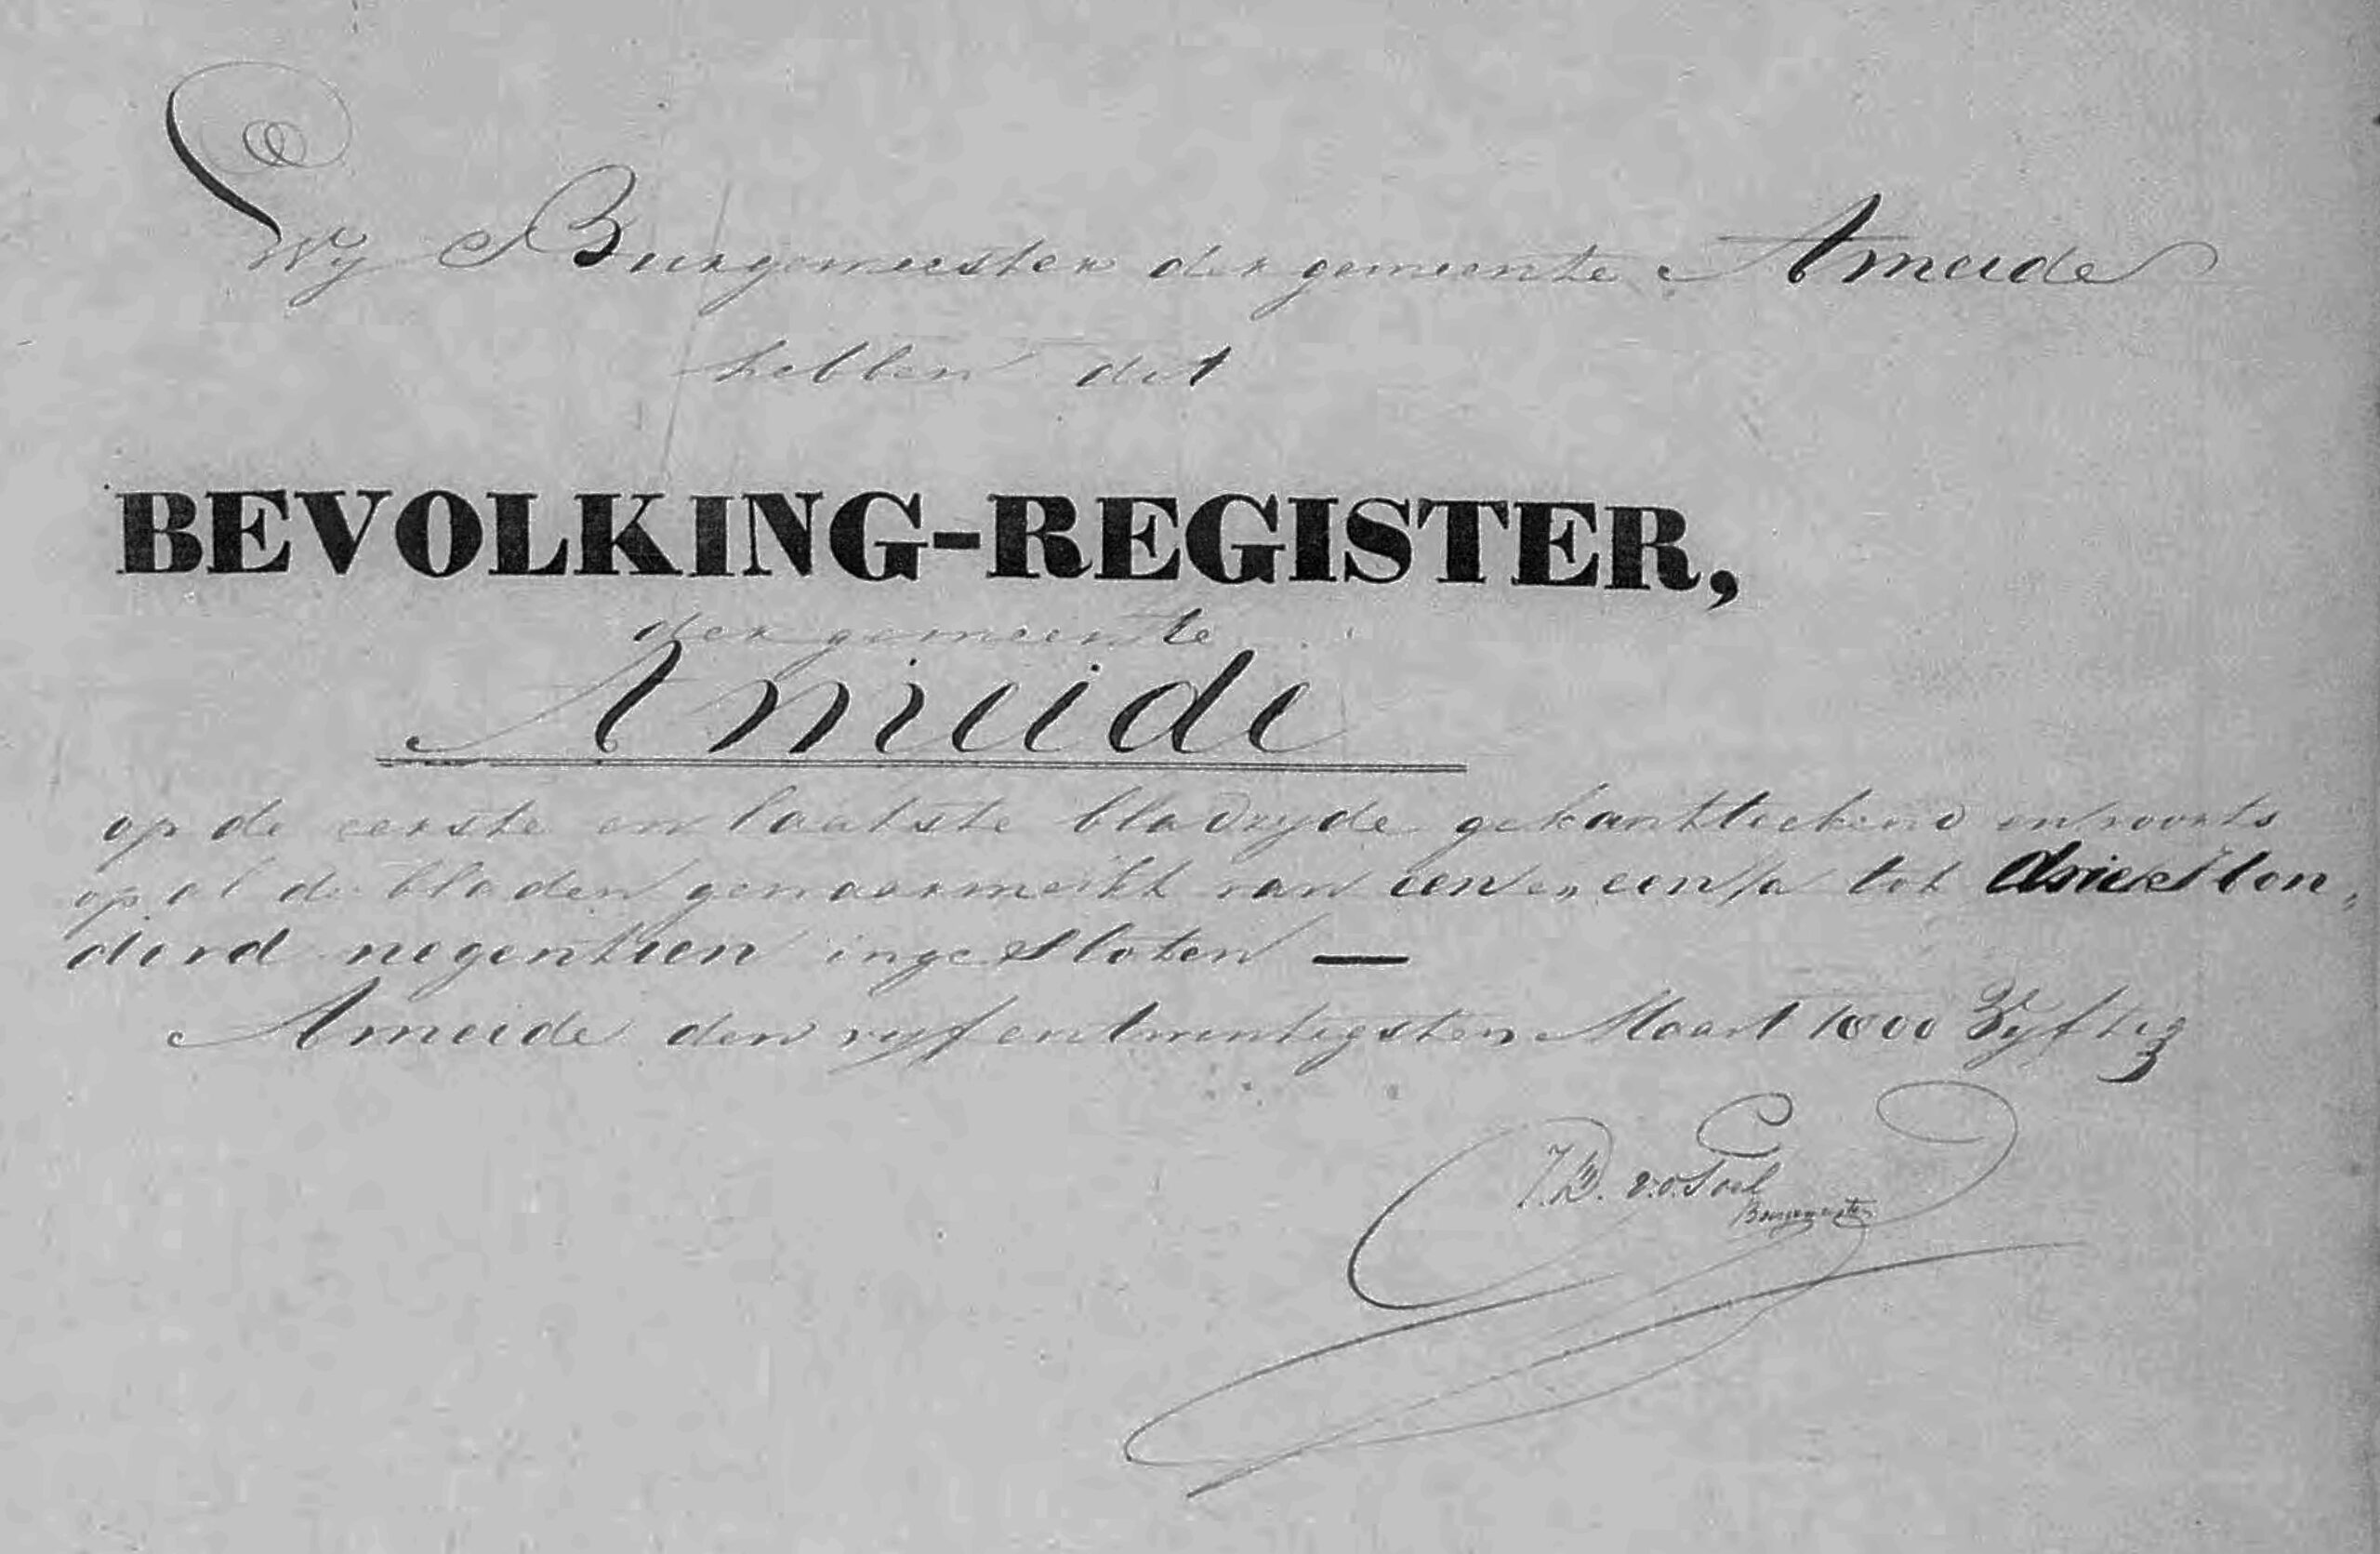 Wij Burgemeester der gemeente Ameide
hebben dit
BEVOLKING-REGISTER,
der gemeente
Ameide
op de eerste en laatste bladzyde gekantteekend en voorts
op al de bladen genaarmerkt van een en een/a tot drie hon„
derd negentien ingesloten —
Ameide den vyf en twintigsten Maart 1800 Vyftig
Burgemeester